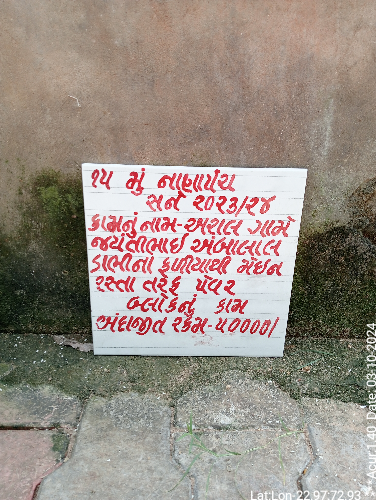 ૧૫ મું નાણાપંચ
સને ૨૦૨૩/૨૪
કામનું નામ-અરાલ ગામે
જયંતીભાઈ અંબાલાલ
ડાભીના ફળીયાથી મેઈન
રસ્તા તરફ પેવર
બ્લોકનું કામ
અંદાજીત રકમ-૫૦૦૦૦/
Lat:Lon-22.97,72.93
Acur:1.40 Date: 03.10.2024